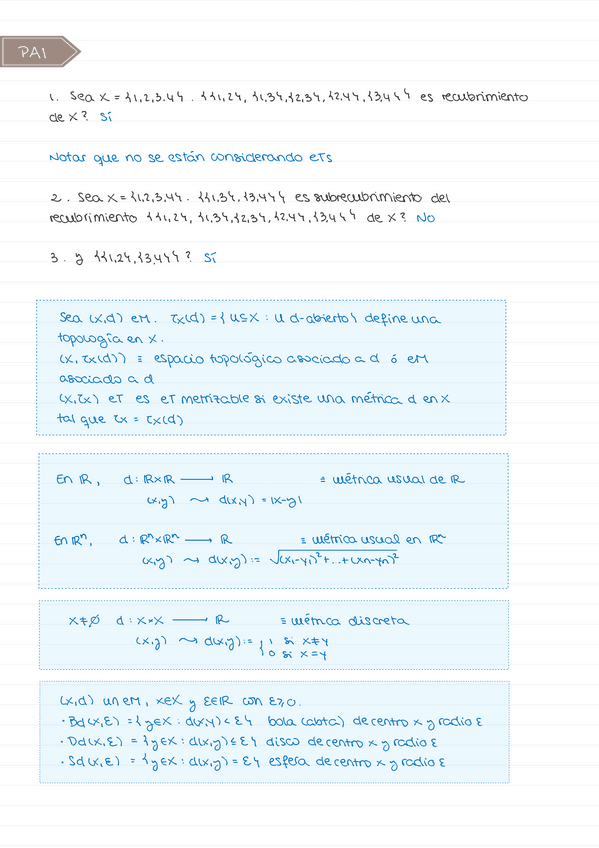 PA1
1. Sea X = {1,2,3,4}. {{1,2}, {1,3},{2,3},{2,4},{3,4}} es recubrimiento
de X? Sí
Notar que no se están considerando eTs
2. Sea X = {1,2,3,4}. {{1,3}, {3,4}} es subrecubrimiento del
recubrimiento {{1,2}, {1,3},{2,3},{2,4},{3,4}} de X? No
3. y {{1,2},{3,4}}? Sí
Sea (X,d) eM. τx(d) = {U⊆X : U d-abierto} define una
topología en X.
(X, τx(d)) ≡ espacio topológico asociado a d ó eM
asociado a d
(X,τx) eT es eT metrizable si existe una métrica d en X
tal que τx = τx(d)
En ℝ, d: ℝ×ℝ ⟶ ℝ ≡ métrica usual de ℝ
(x,y) ⤳ d(x,y) = |x-y|
En ℝⁿ, d: ℝⁿ×ℝⁿ ⟶ ℝ ≡ métrica usual en ℝⁿ
(x,y) ⤳ d(x,y):= √(x₁-y₁)²+..+(xn-yn)²
X≠∅ d: X×X ⟶ ℝ ≡ métrica discreta
(x,y) ⤳ d(x,y):= { 1 si x≠y
0 si x=y
(X,d) un eM, x∈X y ε∈ℝ con ε≥0.
· Bd(x,ε) = {y∈X : d(x,y) < ε} bola (abta) de centro x y radio ε
· Dd(x,ε) = {y∈X : d(x,y) ≤ ε} disco de centro x y radio ε
· Sd(x,ε) = {y∈X : d(x,y) = ε} esfera de centro x y radio ε